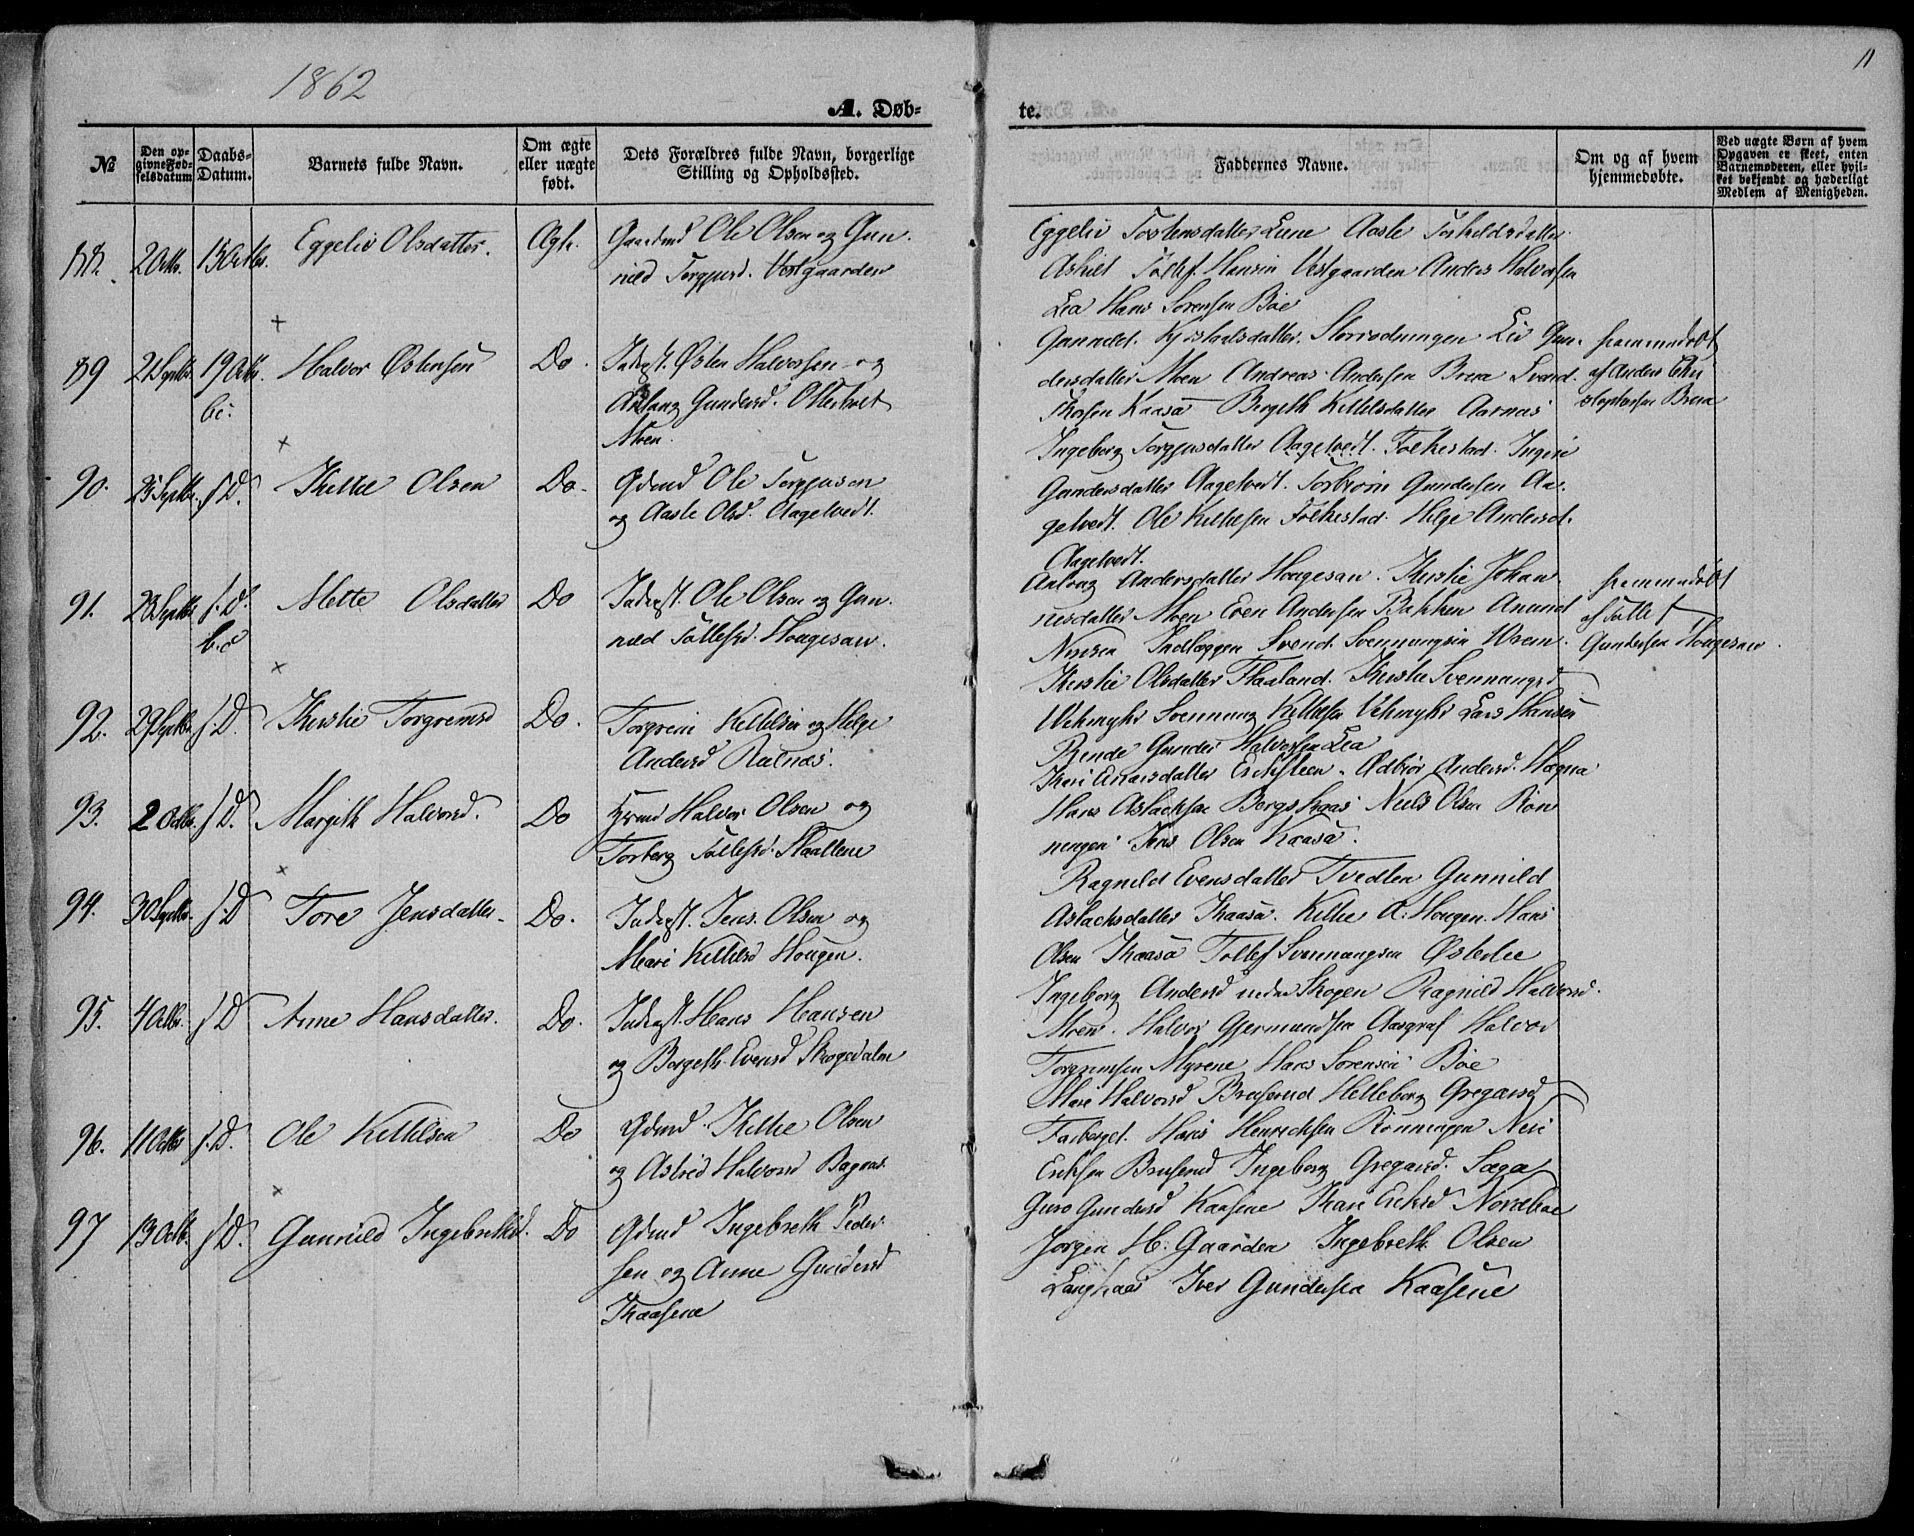 1862
11
A. Døb-
te.
No
Den op-
givne Fød-
selsdatum
Daabs-
Datum.
Barnets fulde Navn.
Om ægte
eller uægte
født.
Dets Forældres fulde Navn, borgerlige
Stilling og Opholdssted.
Faddernes Navne.
Om og af hvem
hjemmedøbte.
Ved uægte Børn af hvem
Opgaven er skeet, enten
Barnemoderen, eller hvil-
ket bekjendt og hæderligt
Medlem af Menigheden.
88. 2 Octb. 15 Octbr. Eggeliv Olsdatter. Ægte. Gaardmd Ole Olsen og Gun-
nild Torgjusd. Vestgaarden
Eggeliv Torstensdatter Lune Aasle Torkildsdatter
Askilt Tollef Hansen Vestgaarden Anders Halvorsen
Lea Hans Sorensen Bøe
89 21 Septbr 19 Octbr. Halvor Østensen Do. Inderst. Østen Halvorsen og
b.c.
Aslaug Gundersd. Ottertvet
Moen.
Gunnild. Kjøstaulsdatter. Storrodningen Liv Gun-
dersdatter Moen Andreas Andersen Brena Svend
Thorsen Kaasa Bergith Kittelsdatter Aarnæs
hjemmedøbt
af Anders Chri
stophersen Brena
90. 25 Septbr. s.D. Kittel Olsen Do. Gdmd Ole Torgjusen
og Aasle Olsd. Aagetvedt.
Ingeborg Torgjusdatter Aagetvedt. Folkestad. Ingrid
Gundersdatter Aagetvedt. Torbiørn Gundersen Aa-
getvedt. Ole Kittilsen Folkestad. Helge Andersd.
Aagetvedt.
91. 28 Septbr s.D. Mette Olsdatter Do Inderst. Ole Olsen og Gun-
b.c
nild Tollefsd. Hougesaw.
Aslaug Andersdatter Hougesaw. Kirstie Johan
nesdatter Moen Even Andersen Bakken Amund
Nirisen Indlæggen Svend Svennungsen Wrem.
hjemmedøbt
af Tollef
Gundersen Hougesaw.
92. 29 Septbr s.D. Kirstie Torgrimsd Do. Torgrim Kittilsen og Helge
Andersd Ruenæs.
Kirstie Olsdatter Flaaland. Kirstie Svennungsd
Vehmyhr Svennung Kittilsen Vehmyhr Lars Hansen
Rende Gunder Halvorsen Lea
93. 2 Octbr. s.D. Margith Halvorsd. Do Hmd Halvor Olsen og
Torberg Tollefsd.
Kari Andersdatter Eriksteen. Ædbiør Andersd. Hægna
Hans Aslacksen Bergshaas Niels Olsen Røn
ningen Jens Olsen Kaasa.
94. 30 Septbr. s.D Tore Jensdatter. Do. Inderst. Jens. Olsen og
Mari Kittilsd Hougen.
Ragnild Evensdatter Tvedten Gunnild
Aslacksdatter Kaasa. Kittel A. Hougen. Hans
Olsen Kaasa Tollef Svennungsen Østerlie
95. 4 Octbr. s.D Anne Hansdatter. Do. Inderst. Hans Hansen
og Borgeth. Evensd Skogsdalen
Ingeborg Andersd nedre Skogen Ragnild Halvorsd.
Moen. Halvor Gjermundsen Aasgraf Halvor
Torgrimsen Myrene Hans Sorensen Bøe
96. 11 Octbr s.D. Ole Kittilsen Do Gdmd. Kittel Olsen
og Astrid Halvorsd Bagaas.
Mari Halvorsd Bruserud Helleborg Gregarsd
Farberget. Hans Henricksen Rønningen Neri
Ericksen Bruserud Ingeborg Gregarsd. Saga
97 13 Octbr. s.D. Gunnild Ingebrethsd. Do Gdmd Ingebreth Peder-
sen og Anne Gundersd
Kaasene
Guro Gundersd Kaasene Kari Ericksd Nordbøe
Jorgen H. Gaarden Ingebreth Olsen
Langkaas Iver Gundersen Kaasene